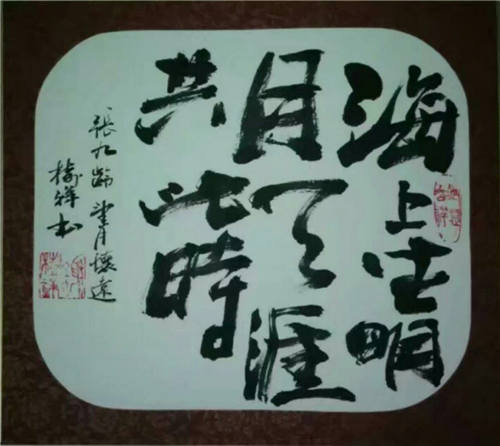 海上生明
月天涯
共此时
張九龄望月懷遠
楊祥书